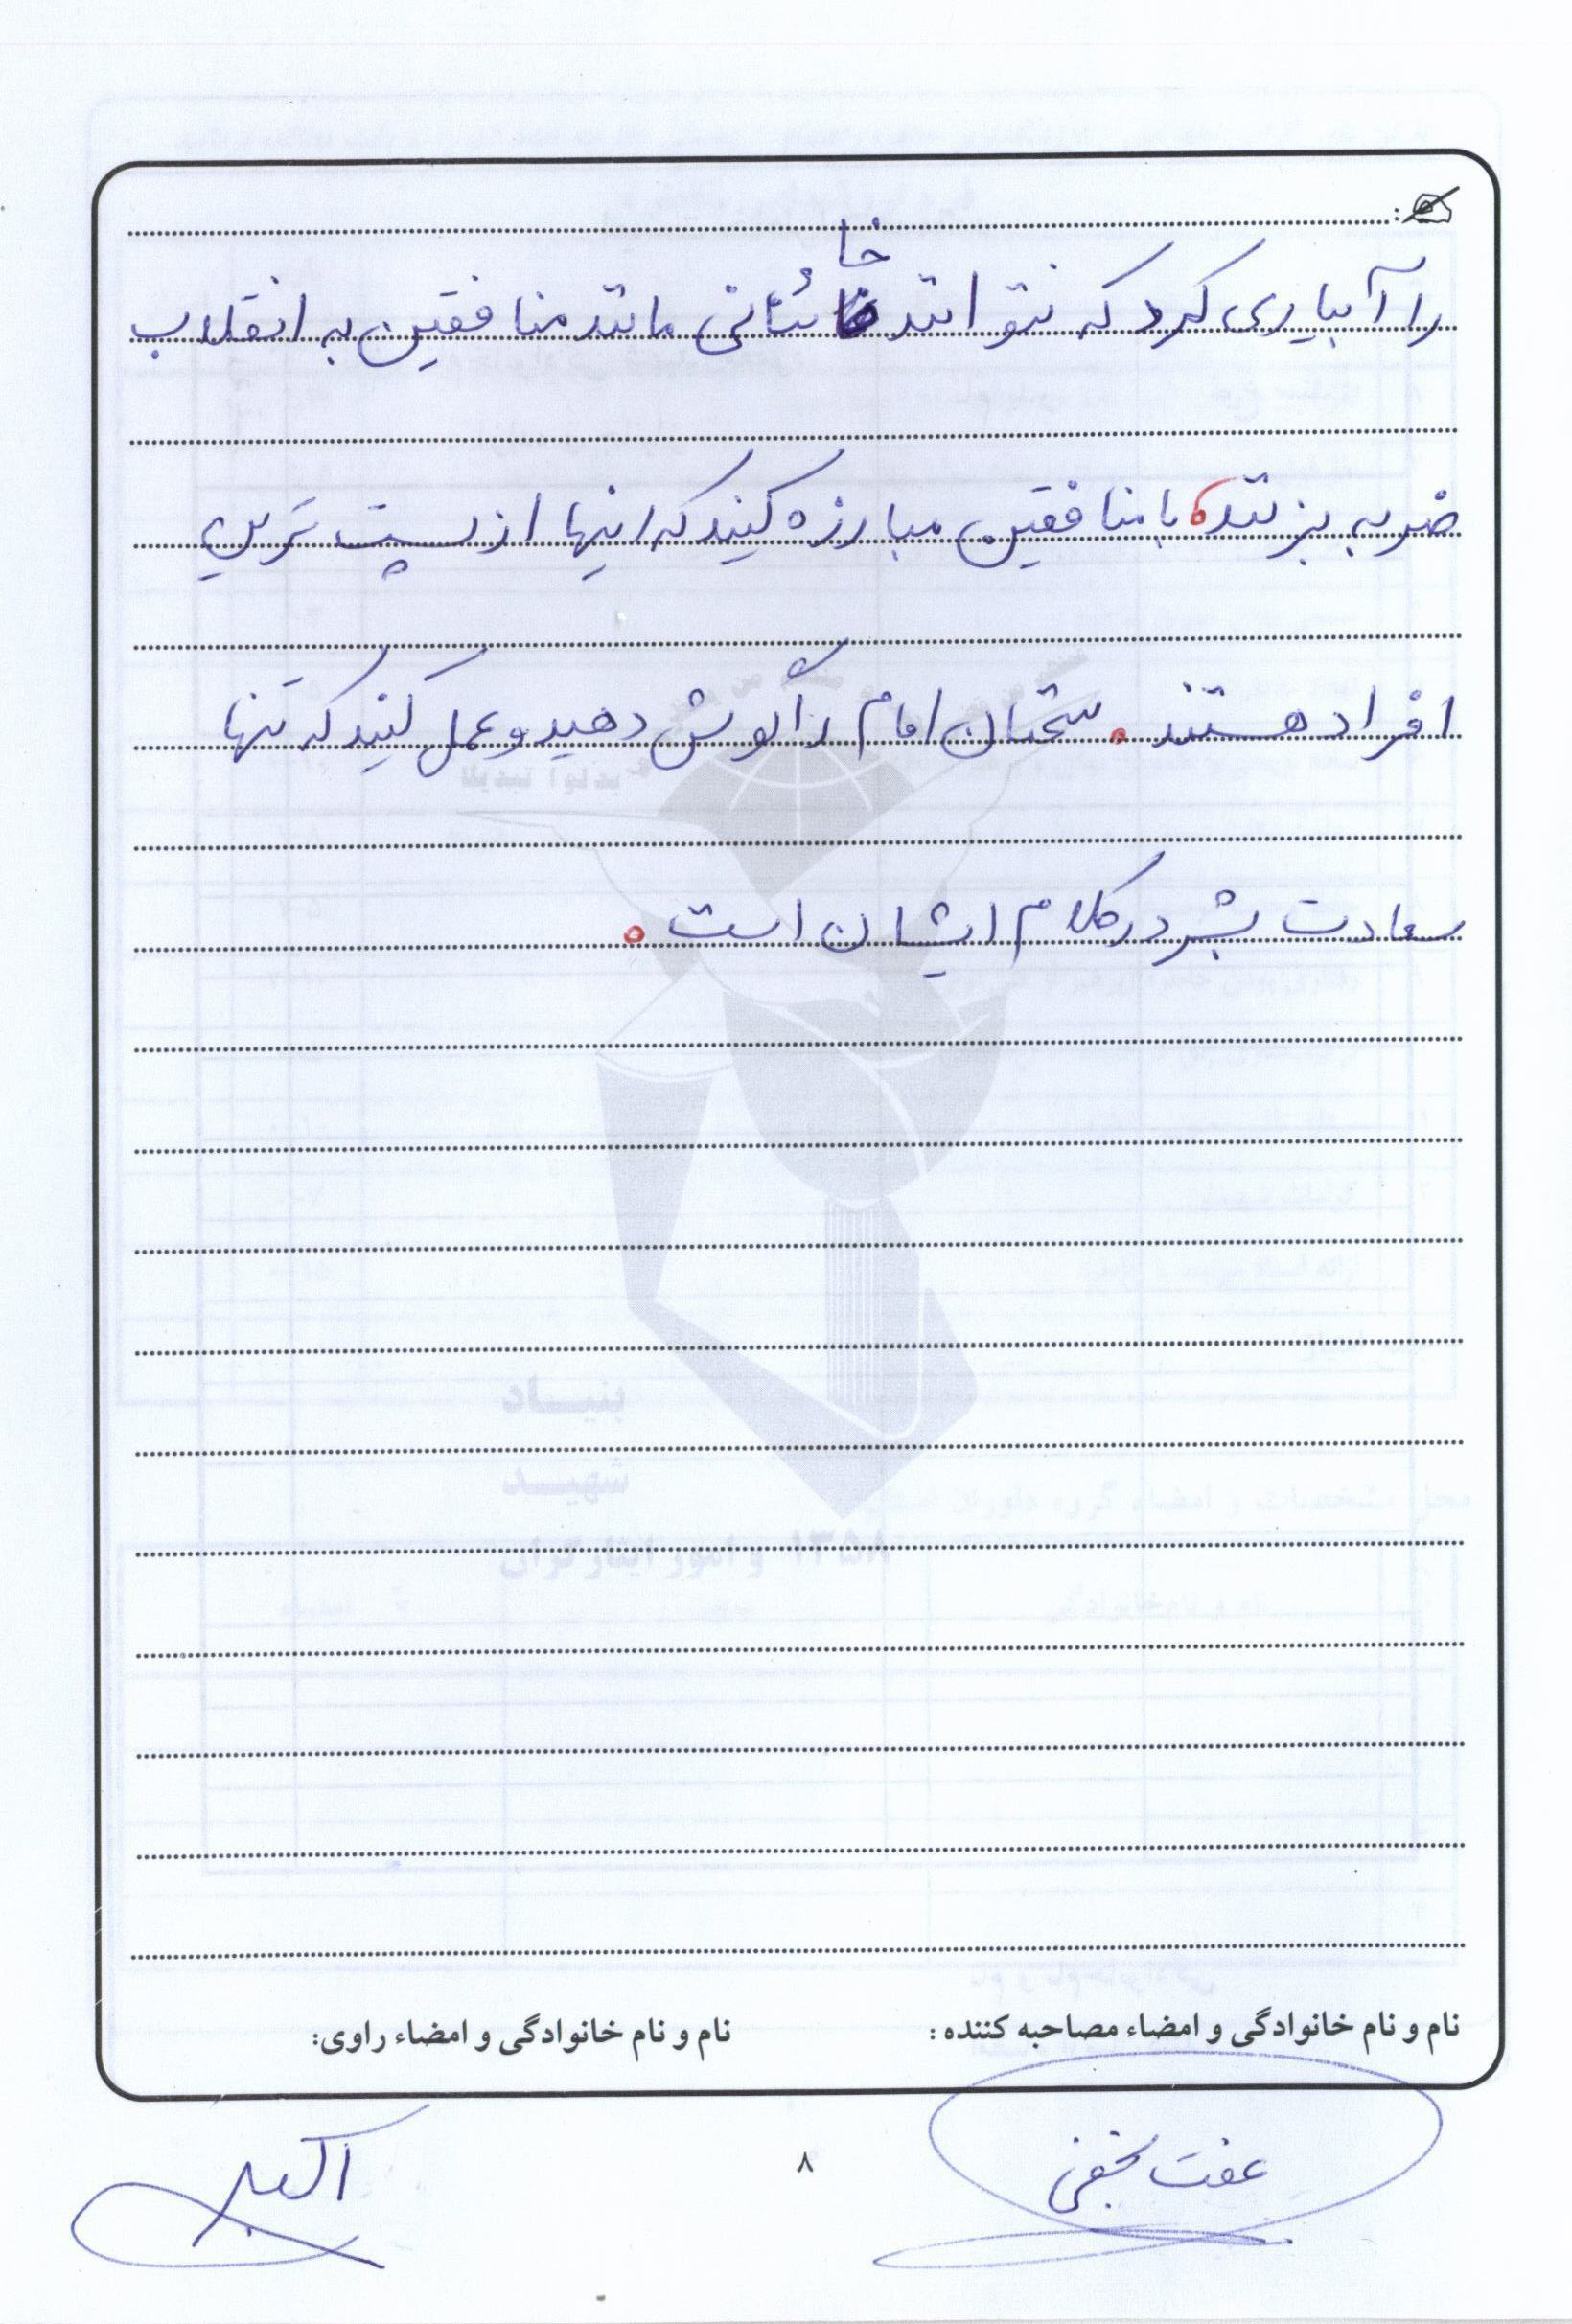 را آبیاری کرد که نتوانند خائنانی مانند منافقین به انقلاب
ضربه بزنند. با منافقین مبارزه کنید که اینها از پست ترین
افراد هستند. سخنان امام را گوش دهید و عمل کنید که تنها
سعادت بشر در کلام ایشان است.
نام و نام خانوادگی و امضاء مصاحبه کننده: نام و نام خانوادگی و امضاء راوی:
عفت نجفی ۸ اکبر
بنیاد
شهید
۱۳۵۸ و امور ایثارگران